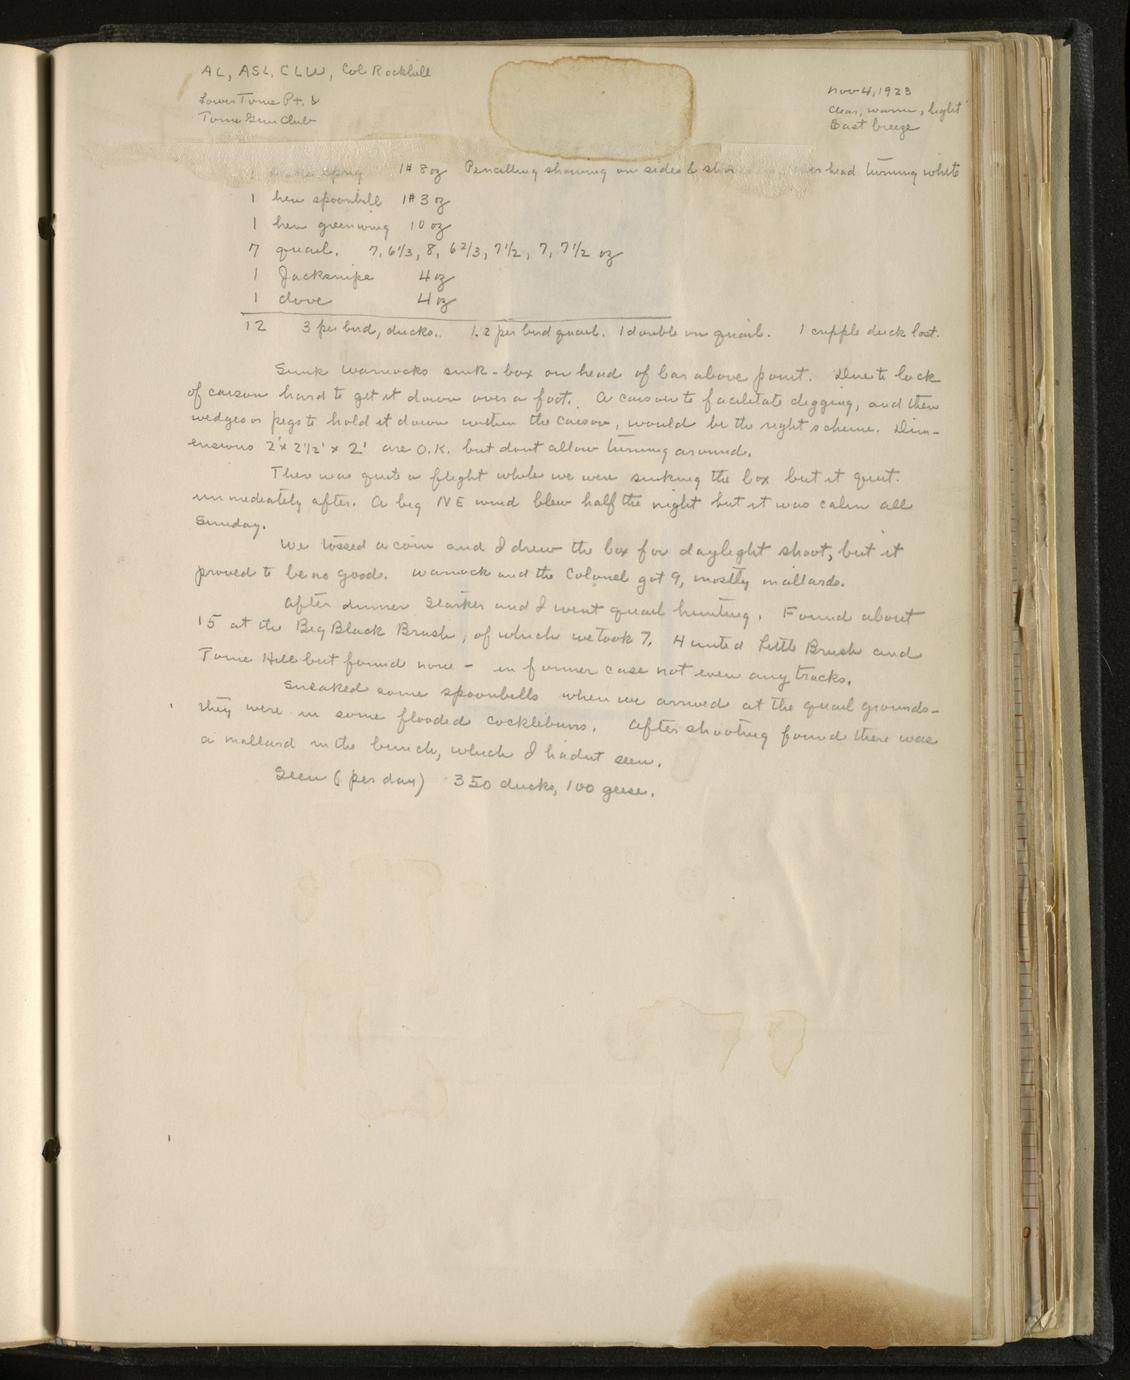 AL, ASL, CLW, Col Rockhill
Lower Tome Pt. &
Tome Gun Club
Nov 4, 1923
Clear, warm, light
East breeze
1 drake sprig 1# 8 oz Pencilling showing on sides & head turning white
1 hen spoonbill 1# 3 oz
1 hen greenwing 10 oz
7 quail. 7, 6 1/3, 8, 6 2/3, 7 1/2, 7, 7 1/2 oz
1 Jacksnipe 4 oz
1 dove 4 oz
12 3 per bird, ducks. 1.2 per bird quail. 1 double on quail. 1 cripple duck lost.
Sunk Warnocks sink-box on head of bar above point. Due to lack
of caison hard to get it down over a foot. A caison to facilitate digging, and then
wedges or pegs to hold it down within the caison, would be the right scheme. Dim-
ensions 2' x 2 1/2' x 2' are O.K. but dont allow turning around.
There was quite a flight while we were sinking the box but it quit
immediately after. A big NE wind blew half the night but it was calm all
Sunday.
We tossed a coin and I drew the box for daylight shoot, but it
proved to be no good. Warnock and the Colonel got 9, mostly mallards.
After dinner Starker and I went quail hunting. Found about
15 at the Big Black Brush, of which we took 7. Hunted Little Brush and
Tome Hill but found none - in former case not even any tracks.
Sneaked some spoonbills when we arrived at the quail grounds -
they were in some flooded cockleburrs. After shooting found there was
a mallard in the bunch, which I hadnt seen.
Seen (per day) 350 ducks, 100 geese.